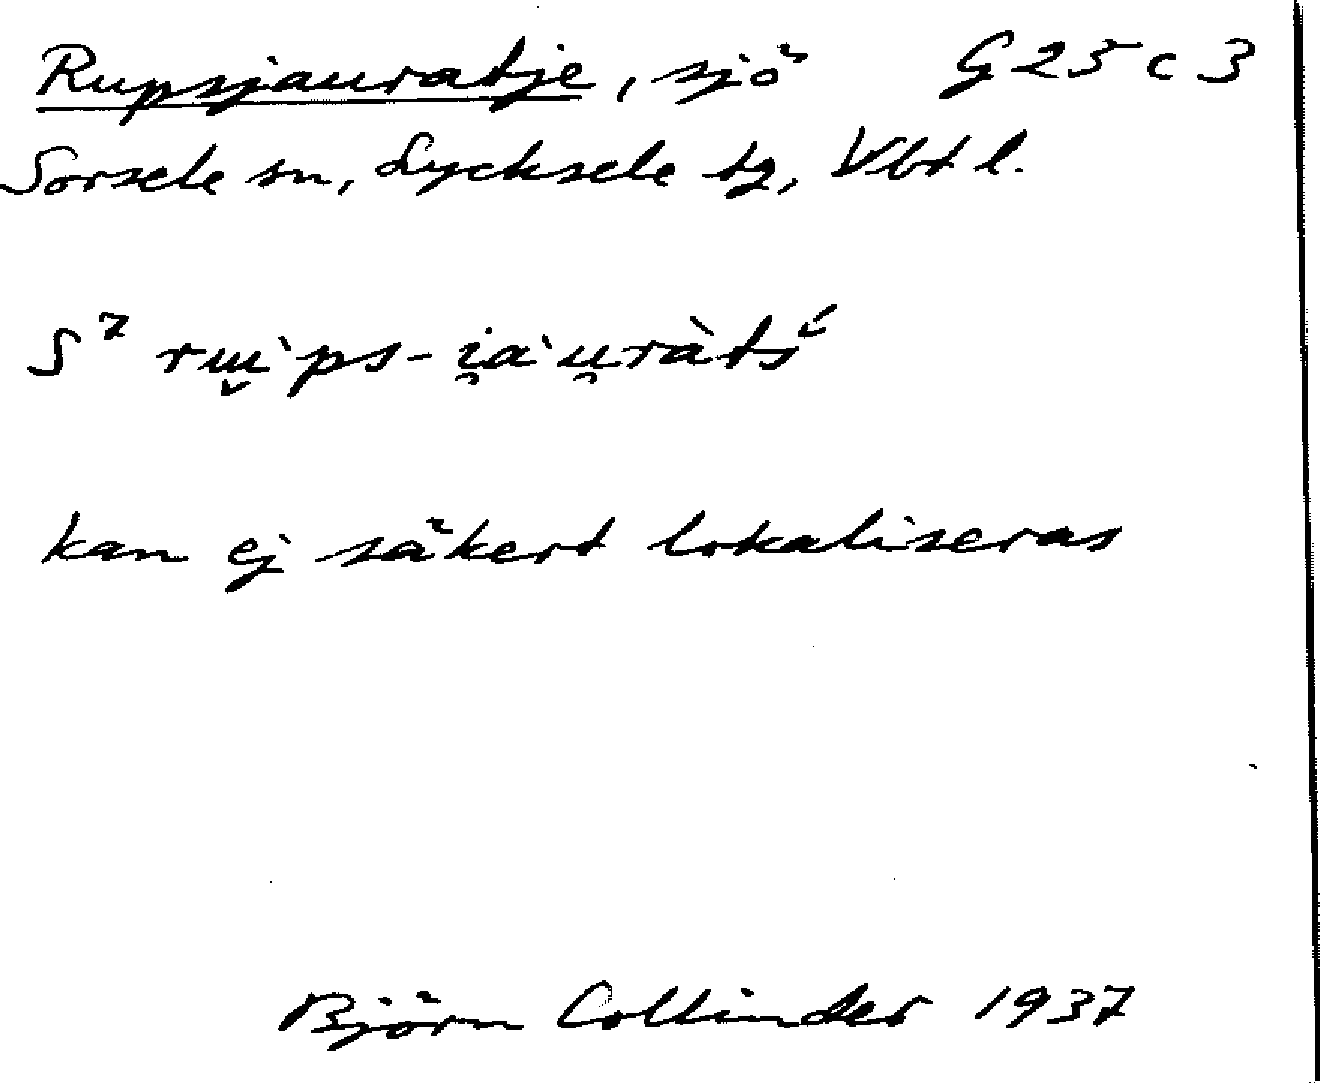 Rupsjauratje, sjö G25c3
Sorsele sn, Lycksele tg, Vbt l.
S⁷ rɯ̬̀ps-i̯a`u̯ràtś̌
kan ej säkert lokaliseras
Björn Collinder 1937